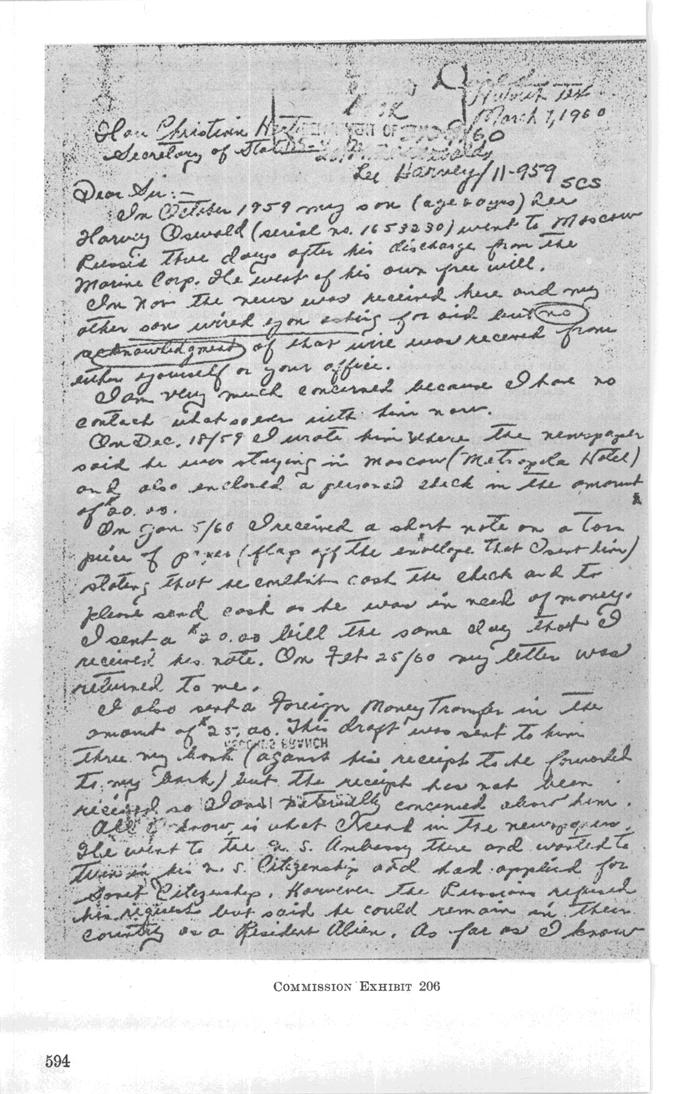 March 7, 1960
Hon Christian
Secretary of State
Lee Harvey/11-959
SCS
Dear Sir:-
In October 1959 my son (age 20 yrs) Lee
Harvey Oswald (serial no. 1653230) went to Moscow
Russia three days after his discharge from the
Marine Corp. He went of his own free will.
In Nov the news was received here and my
other son wired you asking for aid but no
acknowledgment of that wire was received from
either yourself or your office.
I am very much concerned because I have no
contact whatsoever with him now.
On Dec. 18/59 I wrote him where the newspaper
said he was staying in Moscow (Metropole Hotel)
and also enclosed a personal check in the amount
of $20.00.
On Jan 5/60 I received a short note on a torn
piece of paper (flap off the envelope that I sent him)
stating that he couldn't cash the check and to
please send cash as he was in need of money.
I sent a $20.00 bill the same day that I
received his note. On Feb 25/60 my letter was
returned to me.
I also sent a Foreign Money Transfer in the
amount of $25.00. This draft was sent to him
RECORDS BRANCH
three my bank (against his receipt to be forwarded
to my bank) but the receipt has not been
received so I am naturally concerned about him.
All I know is what I read in the newspapers.
He went to the U. S. Ambassy there and wanted to
turn in his U. S. Citizenship and had applied for
Soviet Citizenship. However the Russians refused
his request but said he could remain in their
country as a Resident Alien. As far as I know
COMMISSION EXHIBIT 206
594